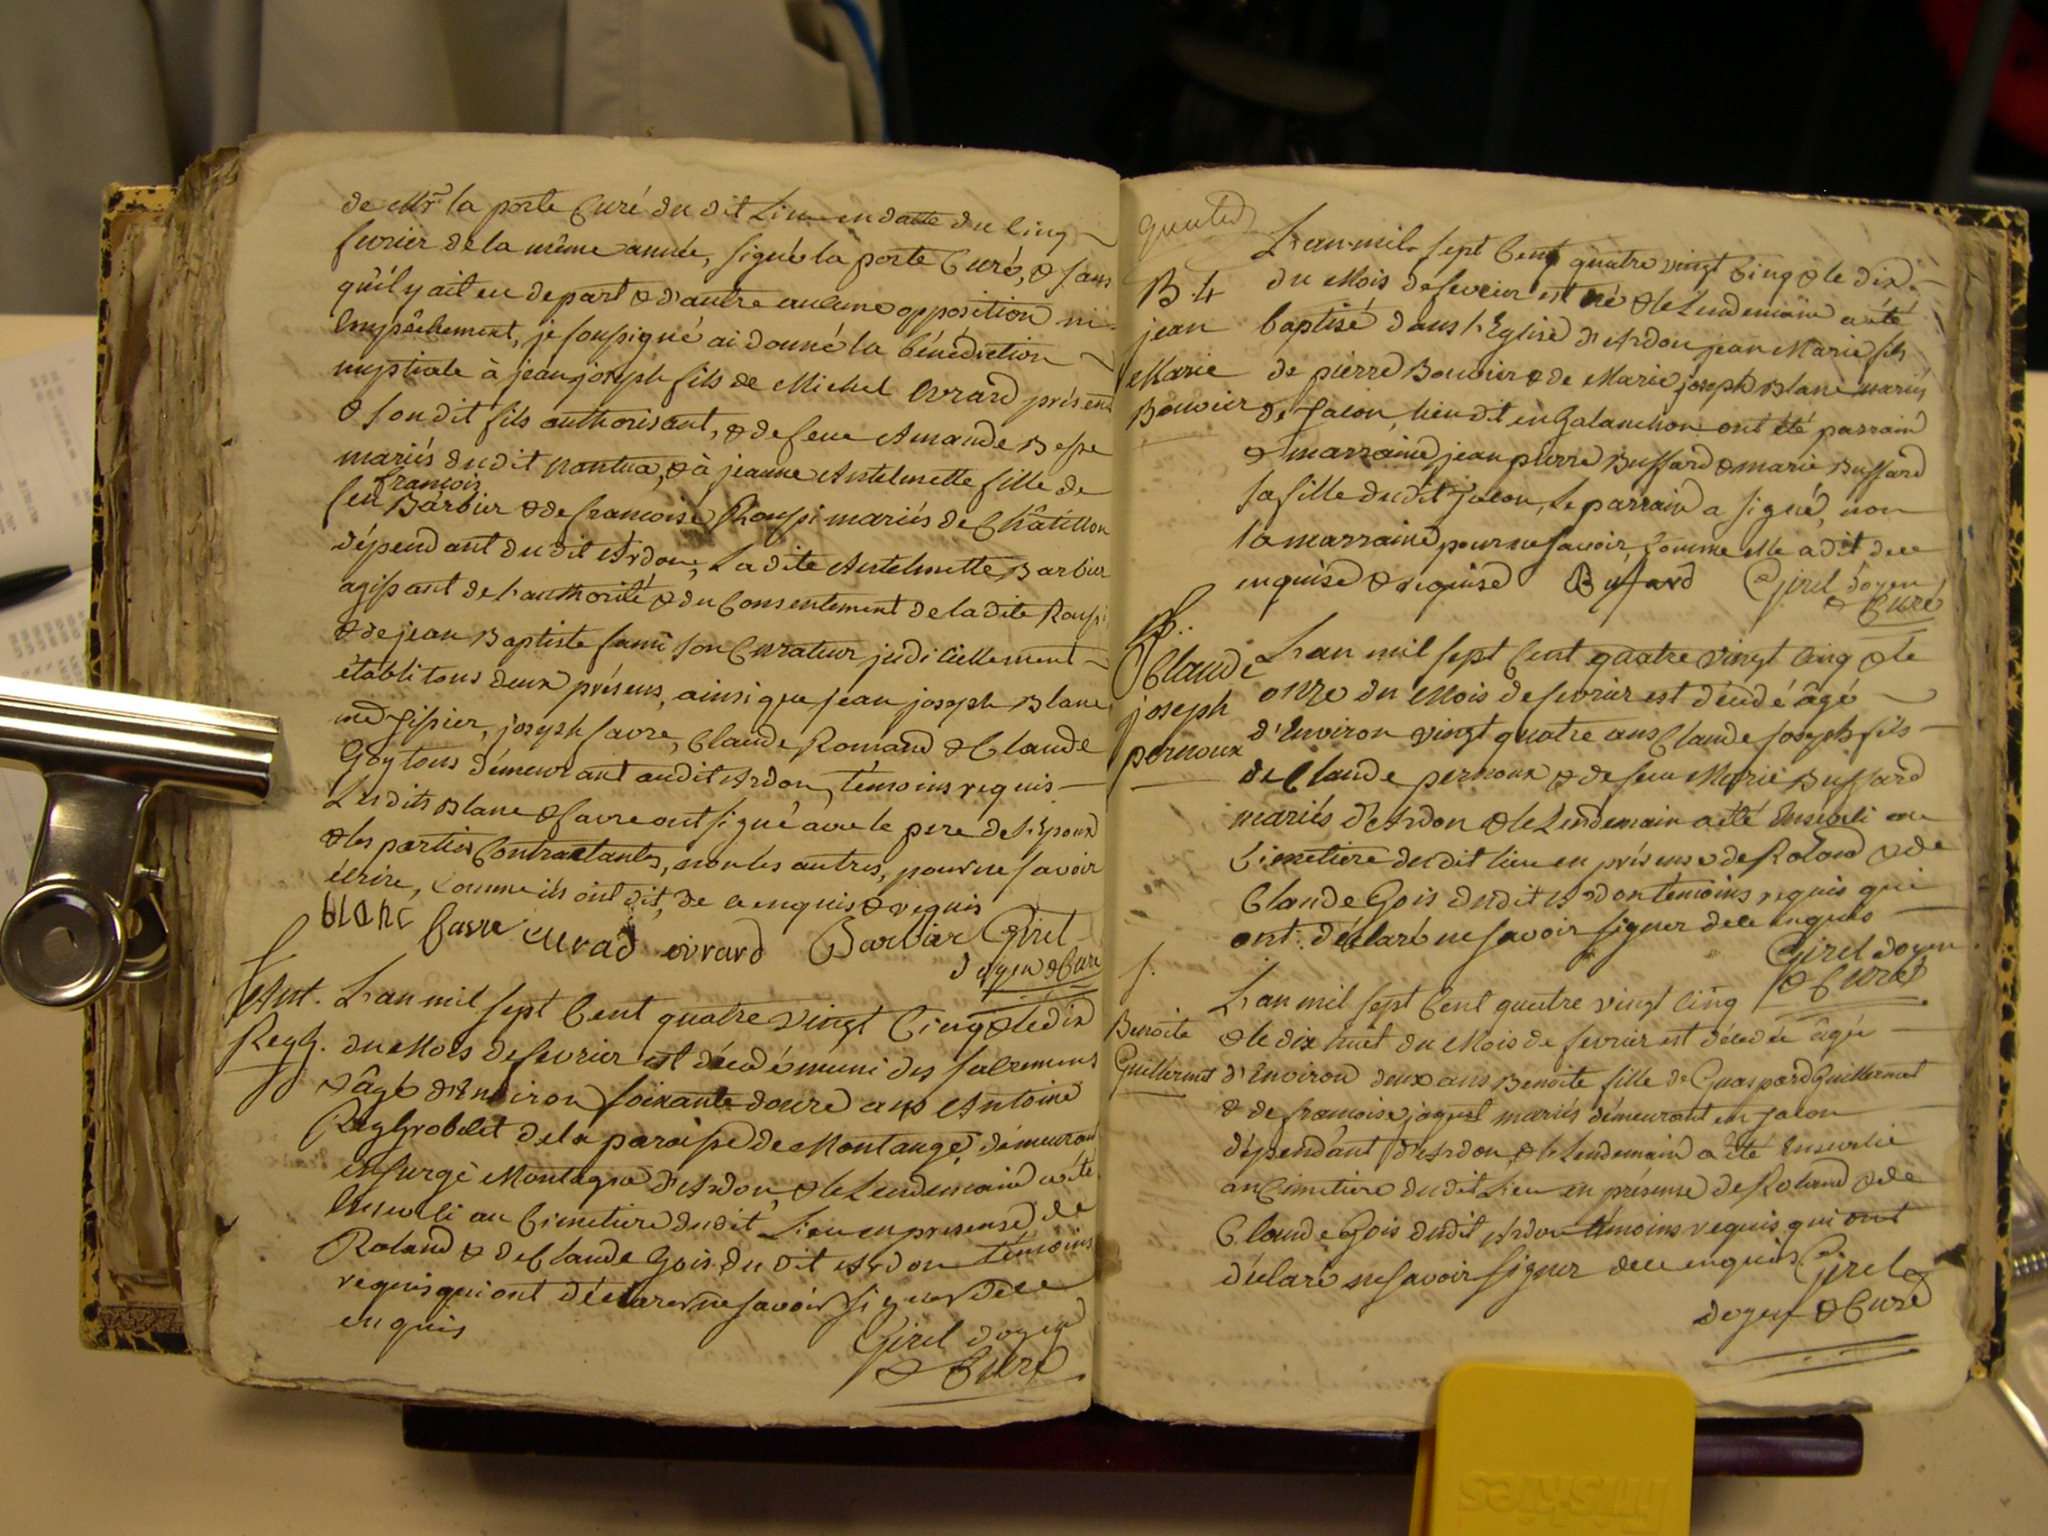 de Mr la porte Curé du dit Lieu en datte du cinq
fevrier de la même année, signé la porte Curé, & sans
qu'il y ait eu de part & d'autre aucune opposition ni
Empêchement, je soussigné ai donné la bénédiction
nuptiale à jean joseph fils de Michel Ovrard présent
& son dit fils authorisant, & de feue Amande Besse
mariés dudit Nantua, & à jeanne Antelmette fille de
françois
feu Barbier & de françoise Roussi mariés de Châtillon
dépendant dudit Ardon, La dite Antelmette Barbier
agissant de l'authorité & du Consentement de la dite Roussi
& de jean Baptiste son Curateur judiciellement
établi tous deux présens, ainsi que jean joseph Blanc
joseph favre, Claude Romand & Claude
Goy tous démeurant audit Ardon, témoins requis
Lesdits Blanc & favre ont signé avec le pere de l'Epoux
& les parties Contractantes, non les autres, pour ne savoir
écrire, comme ils ont dit, de ce enquis & requis
blanc favre ovrard Barbier Girel
doyen & Curé
Ant. L'an mil sept Cent quatre vingt Cinq & le dix
Reyg. du Mois de fevrier est décedé muni des sacremens
& âgé d'Environ soixante douze ans Antoine
Reygrobelet de la paroisse de Montange, démeurant
en surge Montagne d'Ardon, & le Lendemain a été
Enseveli au Cimetiere dudit Lieu en présense de
Roland & de Claude Gois du dit Ardon témoins
requis qui ont déclarer ne savoir signer de ce
enquis
Girel doyen
& Curé
L'an mil sept Cent quatre vingt Cinq & le dix
B. 4 du Mois de fevrier est né & le Lendemain a été
jean baptisé dans l'Eglise d'Ardon jean Marie fils
Marie de pierre Bouvier & de Marie joseph Blanc mariés
Bouvier de Jacon, lieu dit en Galanchon ont été parrain
& marraine jean pierre Buffard & marie Buffard
sa fille dudit Jacon, Le parrain a signé, non
la marraine pour ne savoir, comme elle a dit de ce
enquise & requise Buffard Girel doyen
& Curé
Claude L'an mil sept Cent quatre vingt cinq & le
joseph onze du Mois de fevrier est décedé âgé
pernoux d'Environ vingt quatre ans Claude joseph fils
de Claude pernoux & de feue Marie Buffard
mariés d'Ardon & le Lendemain a été Enseveli au
Cimetiere du dit lieu en présense de Roland & de
Claude Gois dudit Ardon témoins requis qui
ont déclaré ne savoir signer de ce enquis
Girel doyen
& Curé
L'an mil sept Cent quatre vingt cinq
Benoite & le dix huit du Mois de fevrier est décedée âgée
Guillermet d'Environ deux ans Benoite fille de Guaspard Guillermet
& de françoise jaquet mariés démeurant en Jacon
dépendant d'Ardon, & le Lendemain a été Ensevelie
au Cimetiere dudit Lieu en présense de Roland & de
Claude Gois dudit Ardon témoins requis qui ont
déclaré ne savoir signer de ce enquis Girel
doyen & Curé